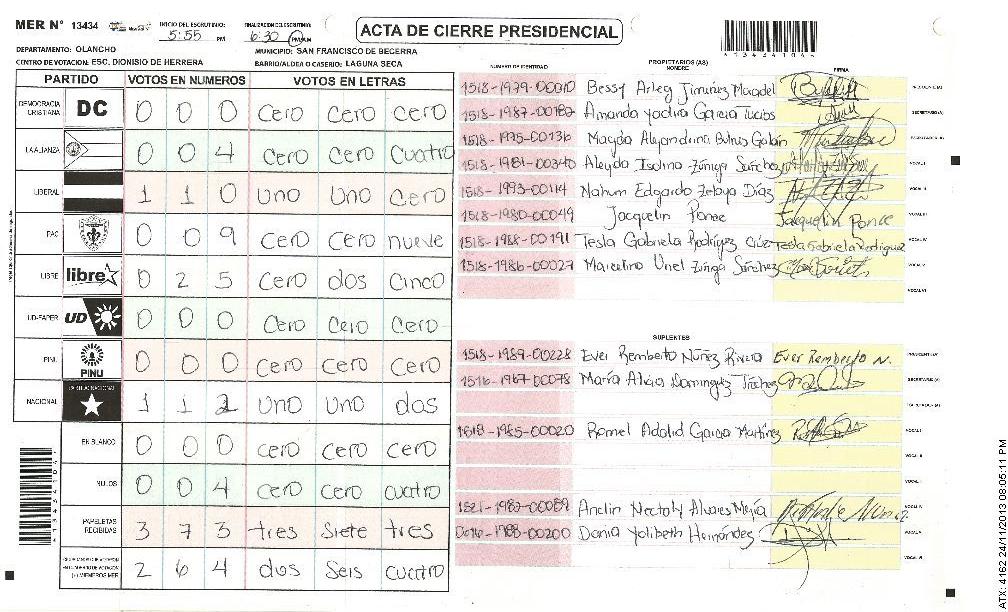 MER N° 13434 INICIO DEL ESCRUTINIO: 5:55 PM FINALIZACION DEL ESCRUTINIO: 6:30 PM
ACTA DE CIERRE PRESIDENCIAL
DEPARTAMENTO: OLANCHO MUNICIPIO: SAN FRANCISCO DE BECERRA
CENTRO DE VOTACION: ESC. DIONISIO DE HERRERA BARRIO/ALDEA O CASERIO: LAGUNA SECA
PARTIDO VOTOS EN NUMEROS VOTOS EN LETRAS
DEMOCRACIA CRISTIANA DC 0 0 0 cero cero cero
LA ALIANZA 0 0 4 cero cero cuatro
LIBERAL 1 1 0 uno uno cero
PAC 0 0 9 cero cero nueve
LIBRE libre 0 2 5 cero dos cinco
UD-FAPER UD 0 0 0 cero cero cero
PINU PINU 0 0 0 cero cero cero
NACIONAL PARTIDO NACIONAL 1 1 2 uno uno dos
EN BLANCO 0 0 0 cero cero cero
NULOS 0 0 4 cero cero cuatro
PAPELETAS RECIBIDAS 3 7 3 tres siete tres
2 6 4 dos seis cuatro
NUMERO DE IDENTIDAD PROPIETARIOS (AS) NOMBRE FIRMA
1518-1979-00010 Bessy Arleg Jimúnez
1518-1987-00182 Amanda Yadira Garcia
1518-1975-00136 Magda Alejandrina
1518-1981-00340 Aleyda Isolina Zúniga Sánchez
1518-1993-00114 Nahum Edgardo Zelaya Díaz
1518-1980-00049 Jacquelin Ponce Jacquelin Ponce
1518-1988-00191 Tesla Gabriela Rodríguez Tesla Gabriela Rodriguez
1518-1986-00027 Marcelino Zúniga Sánchez
SUPLENTES
1518-1989-00228 Ever Remberto Núñez Rivera Ever Remberto N.
1516-1967-00078 María Alicia Dominguez
1518-1985-00020 Romel Adalid Garcia Martínez
1521-1982-00089 Anclin Nectaly Alvares Mejía
1988-00200 Dania Yolibeth Hernández
ATX: 4162 24/11/2013 08:05:11 PM